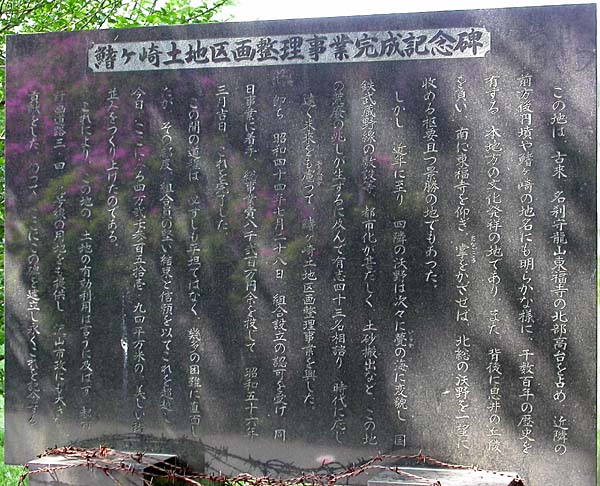 鰭ヶ崎土地区画整理事業完成記念碑
この地は、古来、名刹守龍山東福寺の北部高台を占め、近隣の
前方後円墳や鰭ヶ崎の地名にも明らかな様に、千数百年の歴史を
有する、本地方の文化発祥の地であり、また、背後に思井の
を負い、南に東福寺を仰ぎ、掌をかざせば、北総の沃野を一望に
収める枢要且つ景勝の地でもあった。
しかし、近年に至り、四隣の沃野は次々に甍の海に変貌し、国
鉄武蔵野線の敷設等、都市化が甚だしく、土砂搬出など、この地
の荒廃の兆しが生ずるに及んで有志四十三名相諮り、時代に応じ
遠く未来をも慮って鰭ヶ崎土地区画整理事業を興した。
即ち、昭和四十四年七月二十八日、組合設立の認可を受け、同
日事業に着手、総事業費八千六百万円余を投じて、昭和五十六年
三月吉日、これを完了した。
この間の道程は、必ずしも平坦ではなく、幾多の困難に直面し
たが、その都度、組合員の堅い結束と信頼を以てこれを超克し
今日、ここに四万弐千参百五拾壱・九四平方米の、美しい街
並みをつくり上げたのである。
これにより、この地の土地の有効利用は言うに及ばず、都市
計画道路三・四・号線の用地をも提供し、流山市政にも大き
貢献をした。よって、ここにこの碑を建立し永く